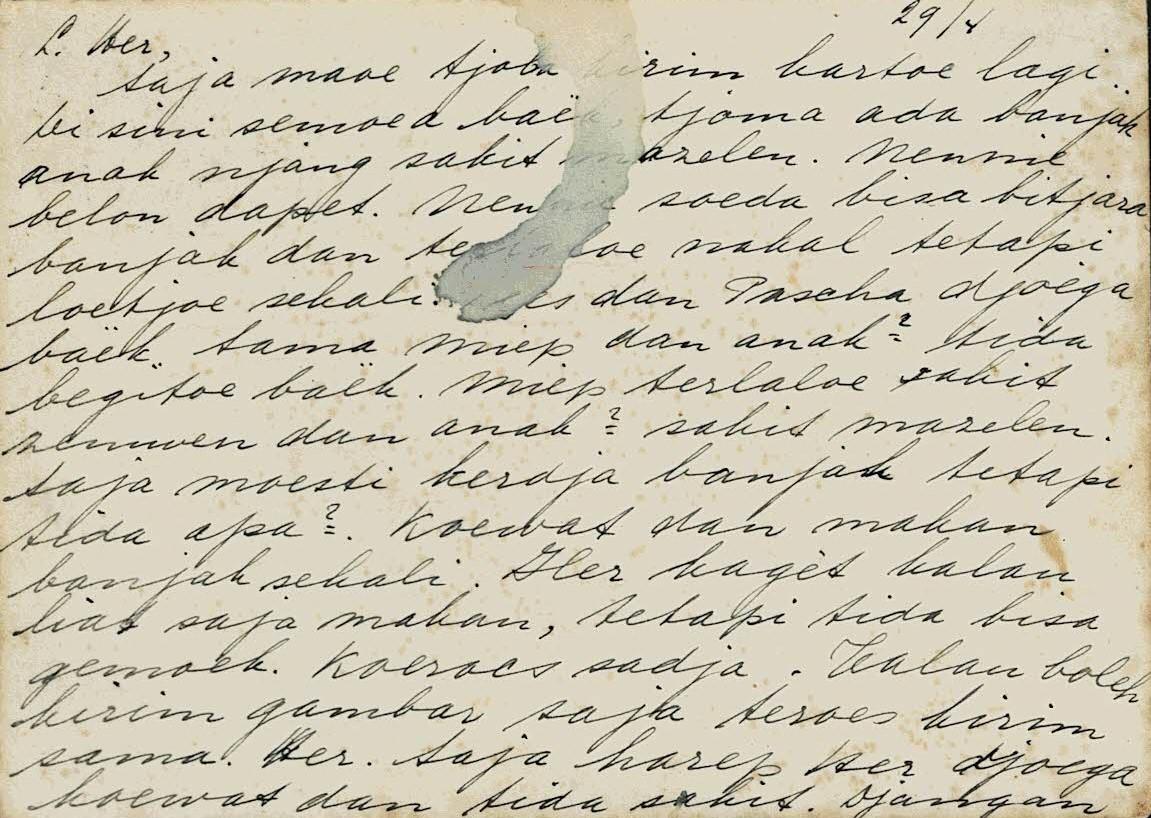 29/4
L. Her,
Saja maoe tjoba kirim kartoe lagi.
Di sini semoea baëk, tjoma ada banjak
anak njang sakit mazelen. Nennie
belon dapet. Nennie soeda bisa bitjara
banjak dan terlaloe nakal tetapi
loetjoe sekali. dan Pascha djoega
baëk. Sama Miep dan anak² tida
begitoe baëk. Miep terlaloe sakit
zenuwen dan anak² sakit mazelen.
Saja moesti kerdja banjak tetapi
tida apa². Koewat dan makan
banjak sekali. Her kagèt kalau
liat saja makan, tetapi tida bisa
gemoek. Koeroes sadja. Kalau boleh
kirim gambar saja teroes kirim
sama. Her. Saja harep Her djoega
koewat dan tida sakit. Djangan